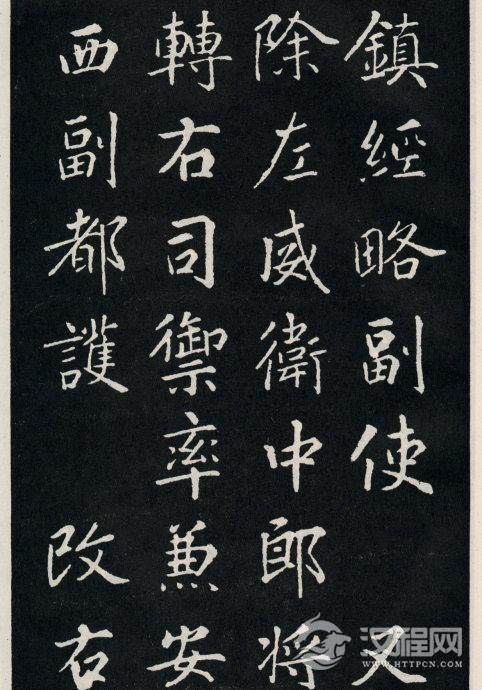 鎮經略副使　又
除左威衛中郎將
轉右司禦率兼安
西副都護　改右
汉程网
WWW.HTTPCN.COM